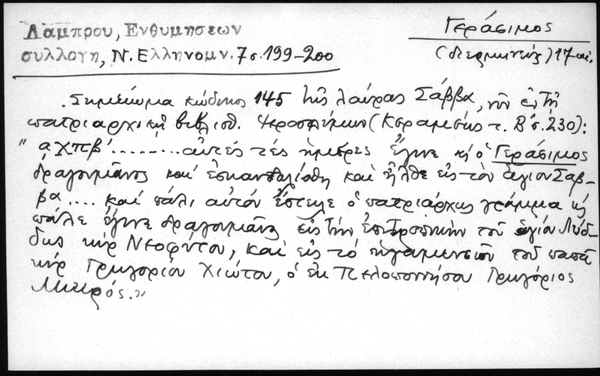 Λάμπρου, Ενθυμησεων
συλλογη, Ν. Ελληνομν. 7 σ. 199-200
Γεράσιμος
(διερμηνεύς) 17 αι.
Σημείωμα κώδικος 145 της λαύρας Σάββα, νῦν ἐν τῇ
πατριαρχικῇ βιβλιοθ. Ἱεροσολύμων (Κεραμεύς τ. Β' σ. 230):
"αχπβ' ......... αὐτές τές ἡμέρες ἔγινε κι ὁ Γεράσιμος
δραγομᾶνος καί ἐσκανταλίσθη καί ἦλθε εἰς τόν ἅγιον Σάβ-
βα .... καί πάλι αὐτόν ἔστειλε ὁ πατριάρχης γράμμα κι
πάλε ἔγινε δραγομᾶνος εἰς τήν ἐπιτροπικήν τοῦ ἁγίου Λύδ-
δης κύρ Νεοφύτου, καί εἰς τό ἡγουμενεῖον τοῦ παπᾶ
κύρ Γρηγορίου Χιώτου, ὁ ἐκ Πελοποννήσου Γρηγόριος
Μικρός."